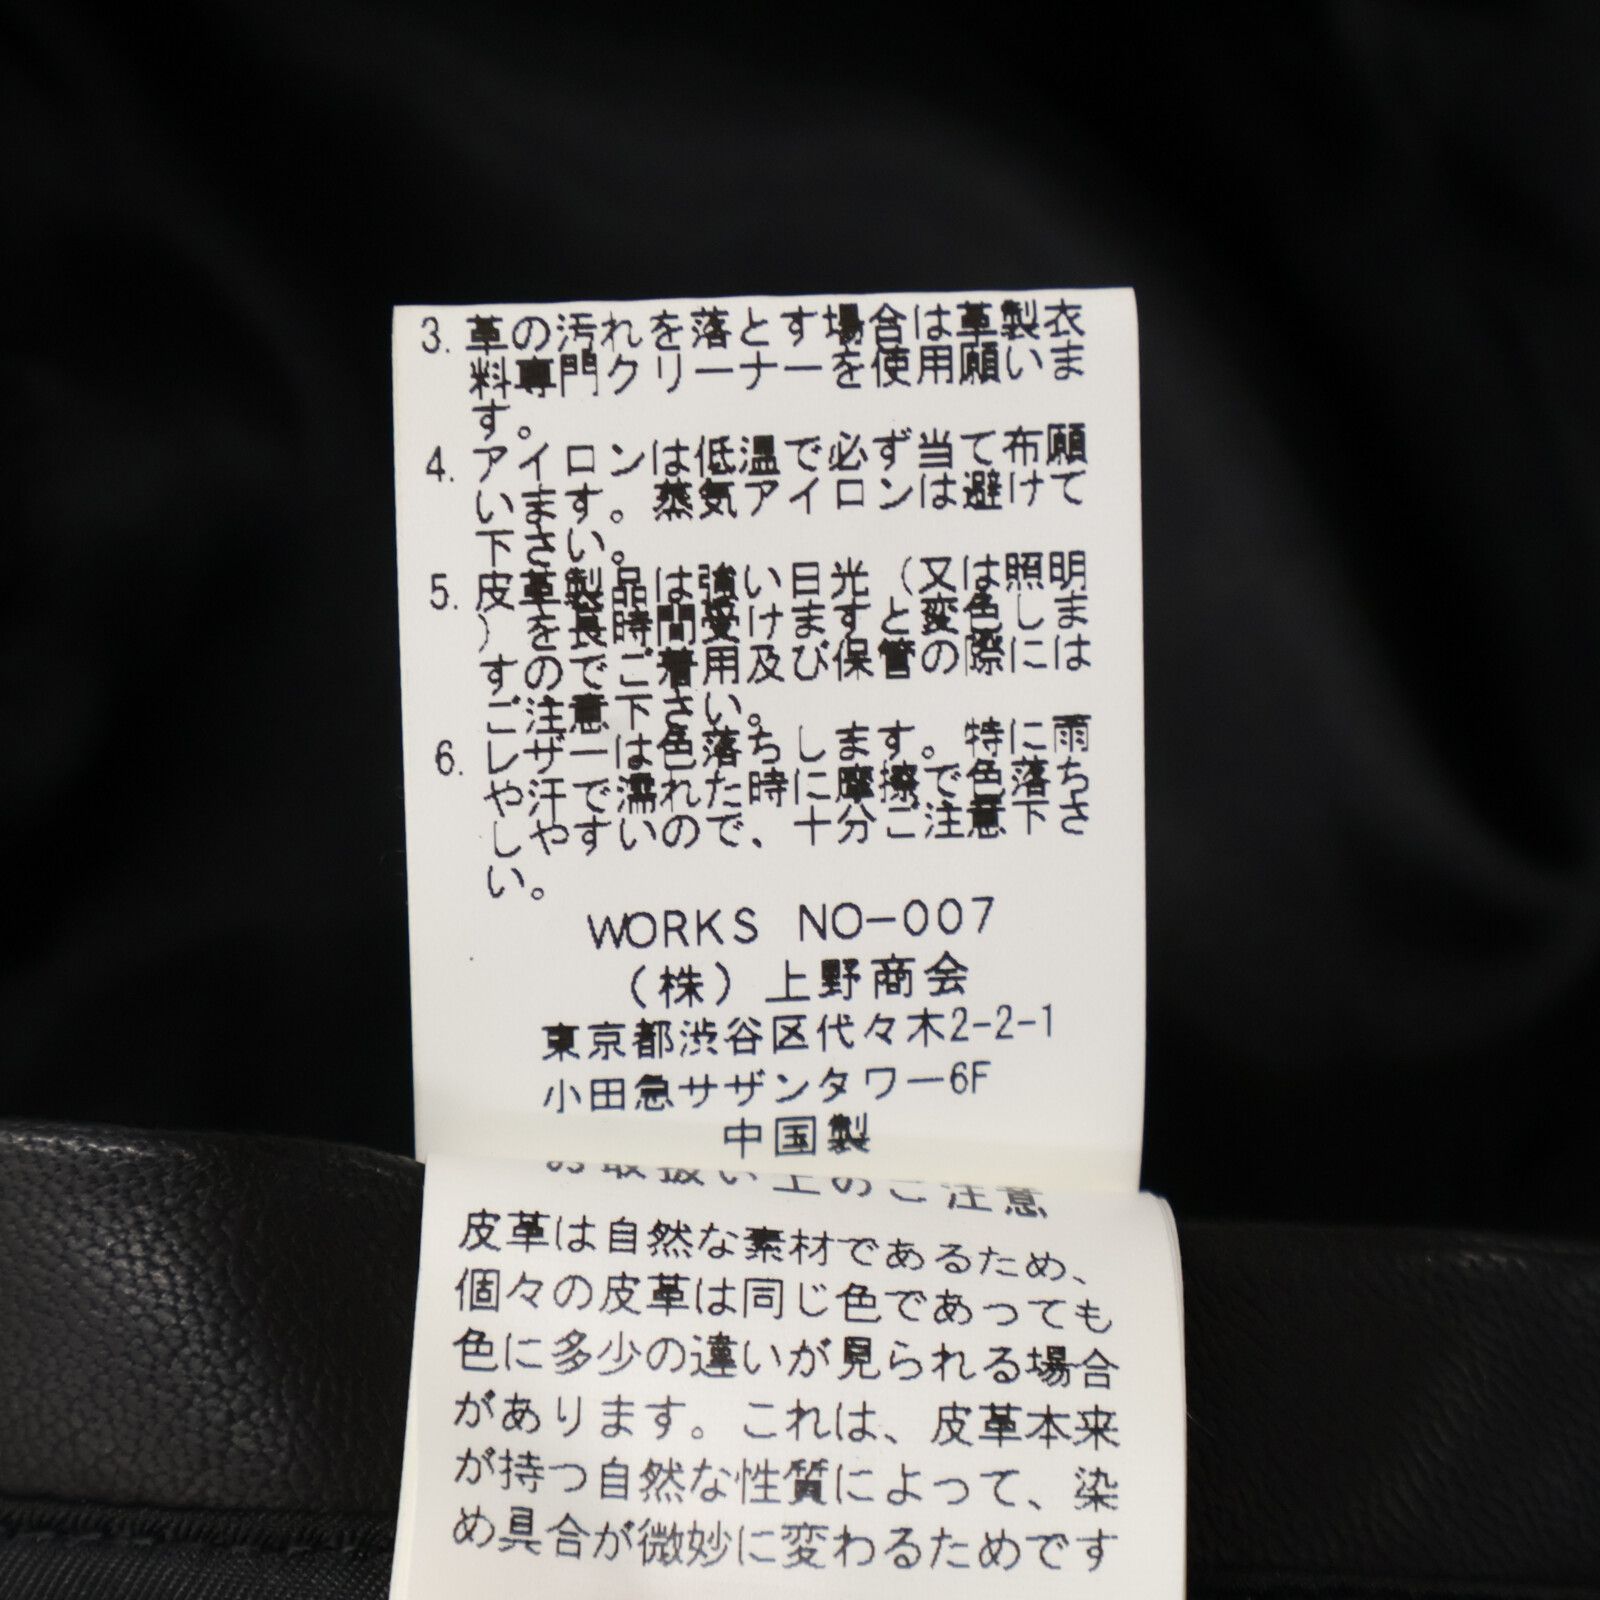 3. 革の汚れを落とす場合は革製衣
料専門クリーナーを使用願いま
す。
4. アイロンは低温で必ず当て布願
います。蒸気アイロンは避けて
下さい。
5. 皮革製品は強い日光(又は照明
)を長時間受けますと変色しま
すので ご着用及び保管の際には
ご注意下さい。
6. レザーは色落ちします。特に雨
や汗で濡れた時に摩擦で色落ち
しやすいので、十分ご注意下さ
い。
WORKS NO-007
(株)上野商会
東京都渋谷区代々木2-2-1
小田急サザンタワー6F
中国製
お取扱い上のご注意
皮革は自然な素材であるため、
個々の皮革は同じ色であっても
色に多少の違いが見られる場合
があります。これは、皮革本来
が持つ自然な性質によって、染
め具合が微妙に変わるためです